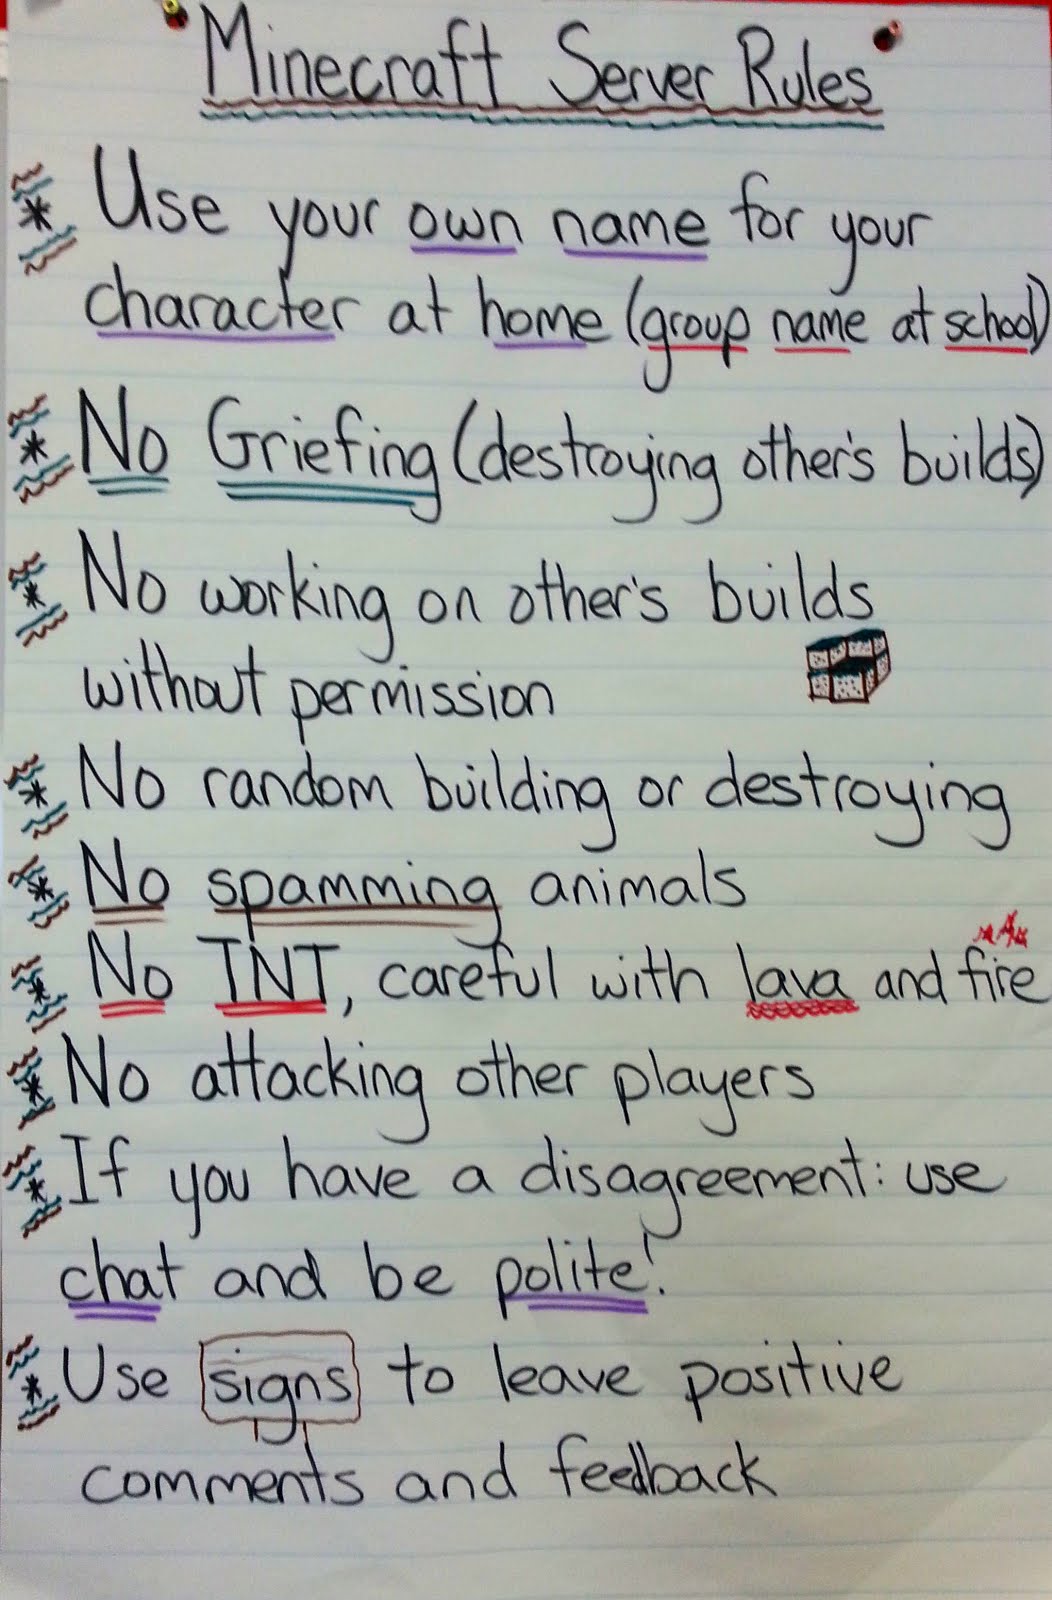 Minecraft Server Rules
* Use your own name for your
character at home (group name at school)
* No Griefing (destroying other's builds)
* No working on other's builds
without permission
* No random building or destroying
* No spamming animals
* No TNT, careful with lava and fire
* No attacking other players
* If you have a disagreement: use
chat and be polite!
* Use signs to leave positive
comments and feedback